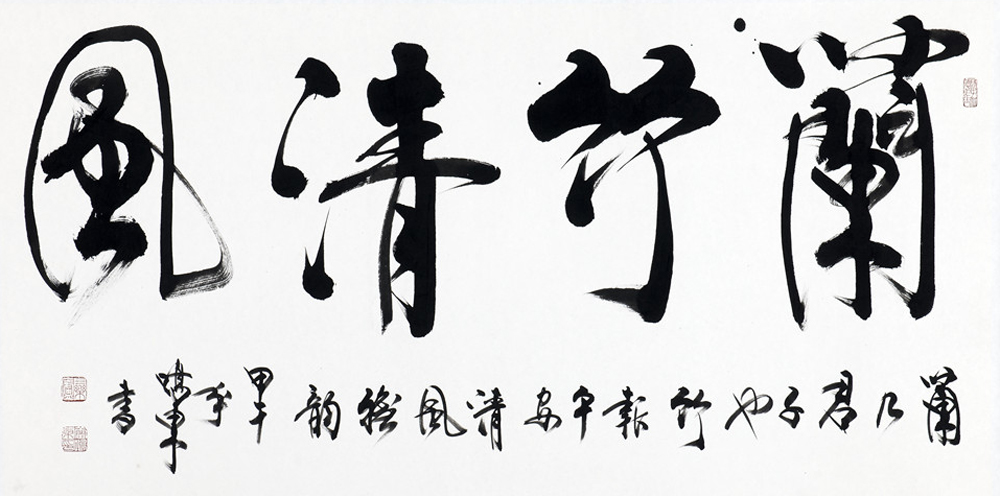 蘭竹清風
蘭乃君子也竹報平安清風韻
甲午年
書